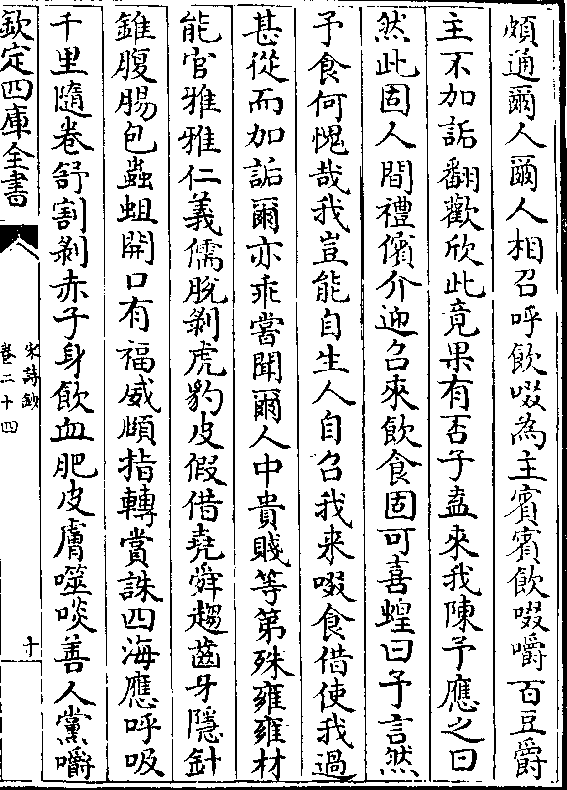 頗通爾人爾人相召呼飲啜為主賓賓飲啜嚼百豆爵
主不加詬翻歡欣此竟果有否子盍來我陳予應之曰
然此固人間禮儐介迎召來飲食固可喜蝗曰子言然
予食何愧哉我豈能自生人自召我来啜食借使我過
甚從而加詬爾亦乖嘗聞爾人中貴賤等第殊雍雍材
能官雅雅仁義儒脫剝虎豹皮假借堯舜趨齒牙隱針
錐腹腸包蟲蛆開口有福威頤指轉賞誅四海應呼吸
千里隨卷舒割剝赤子身飲血肥皮膚噬啖善人黨嚼
欽定四庫全書
宋詩鈔
卷二十四
十